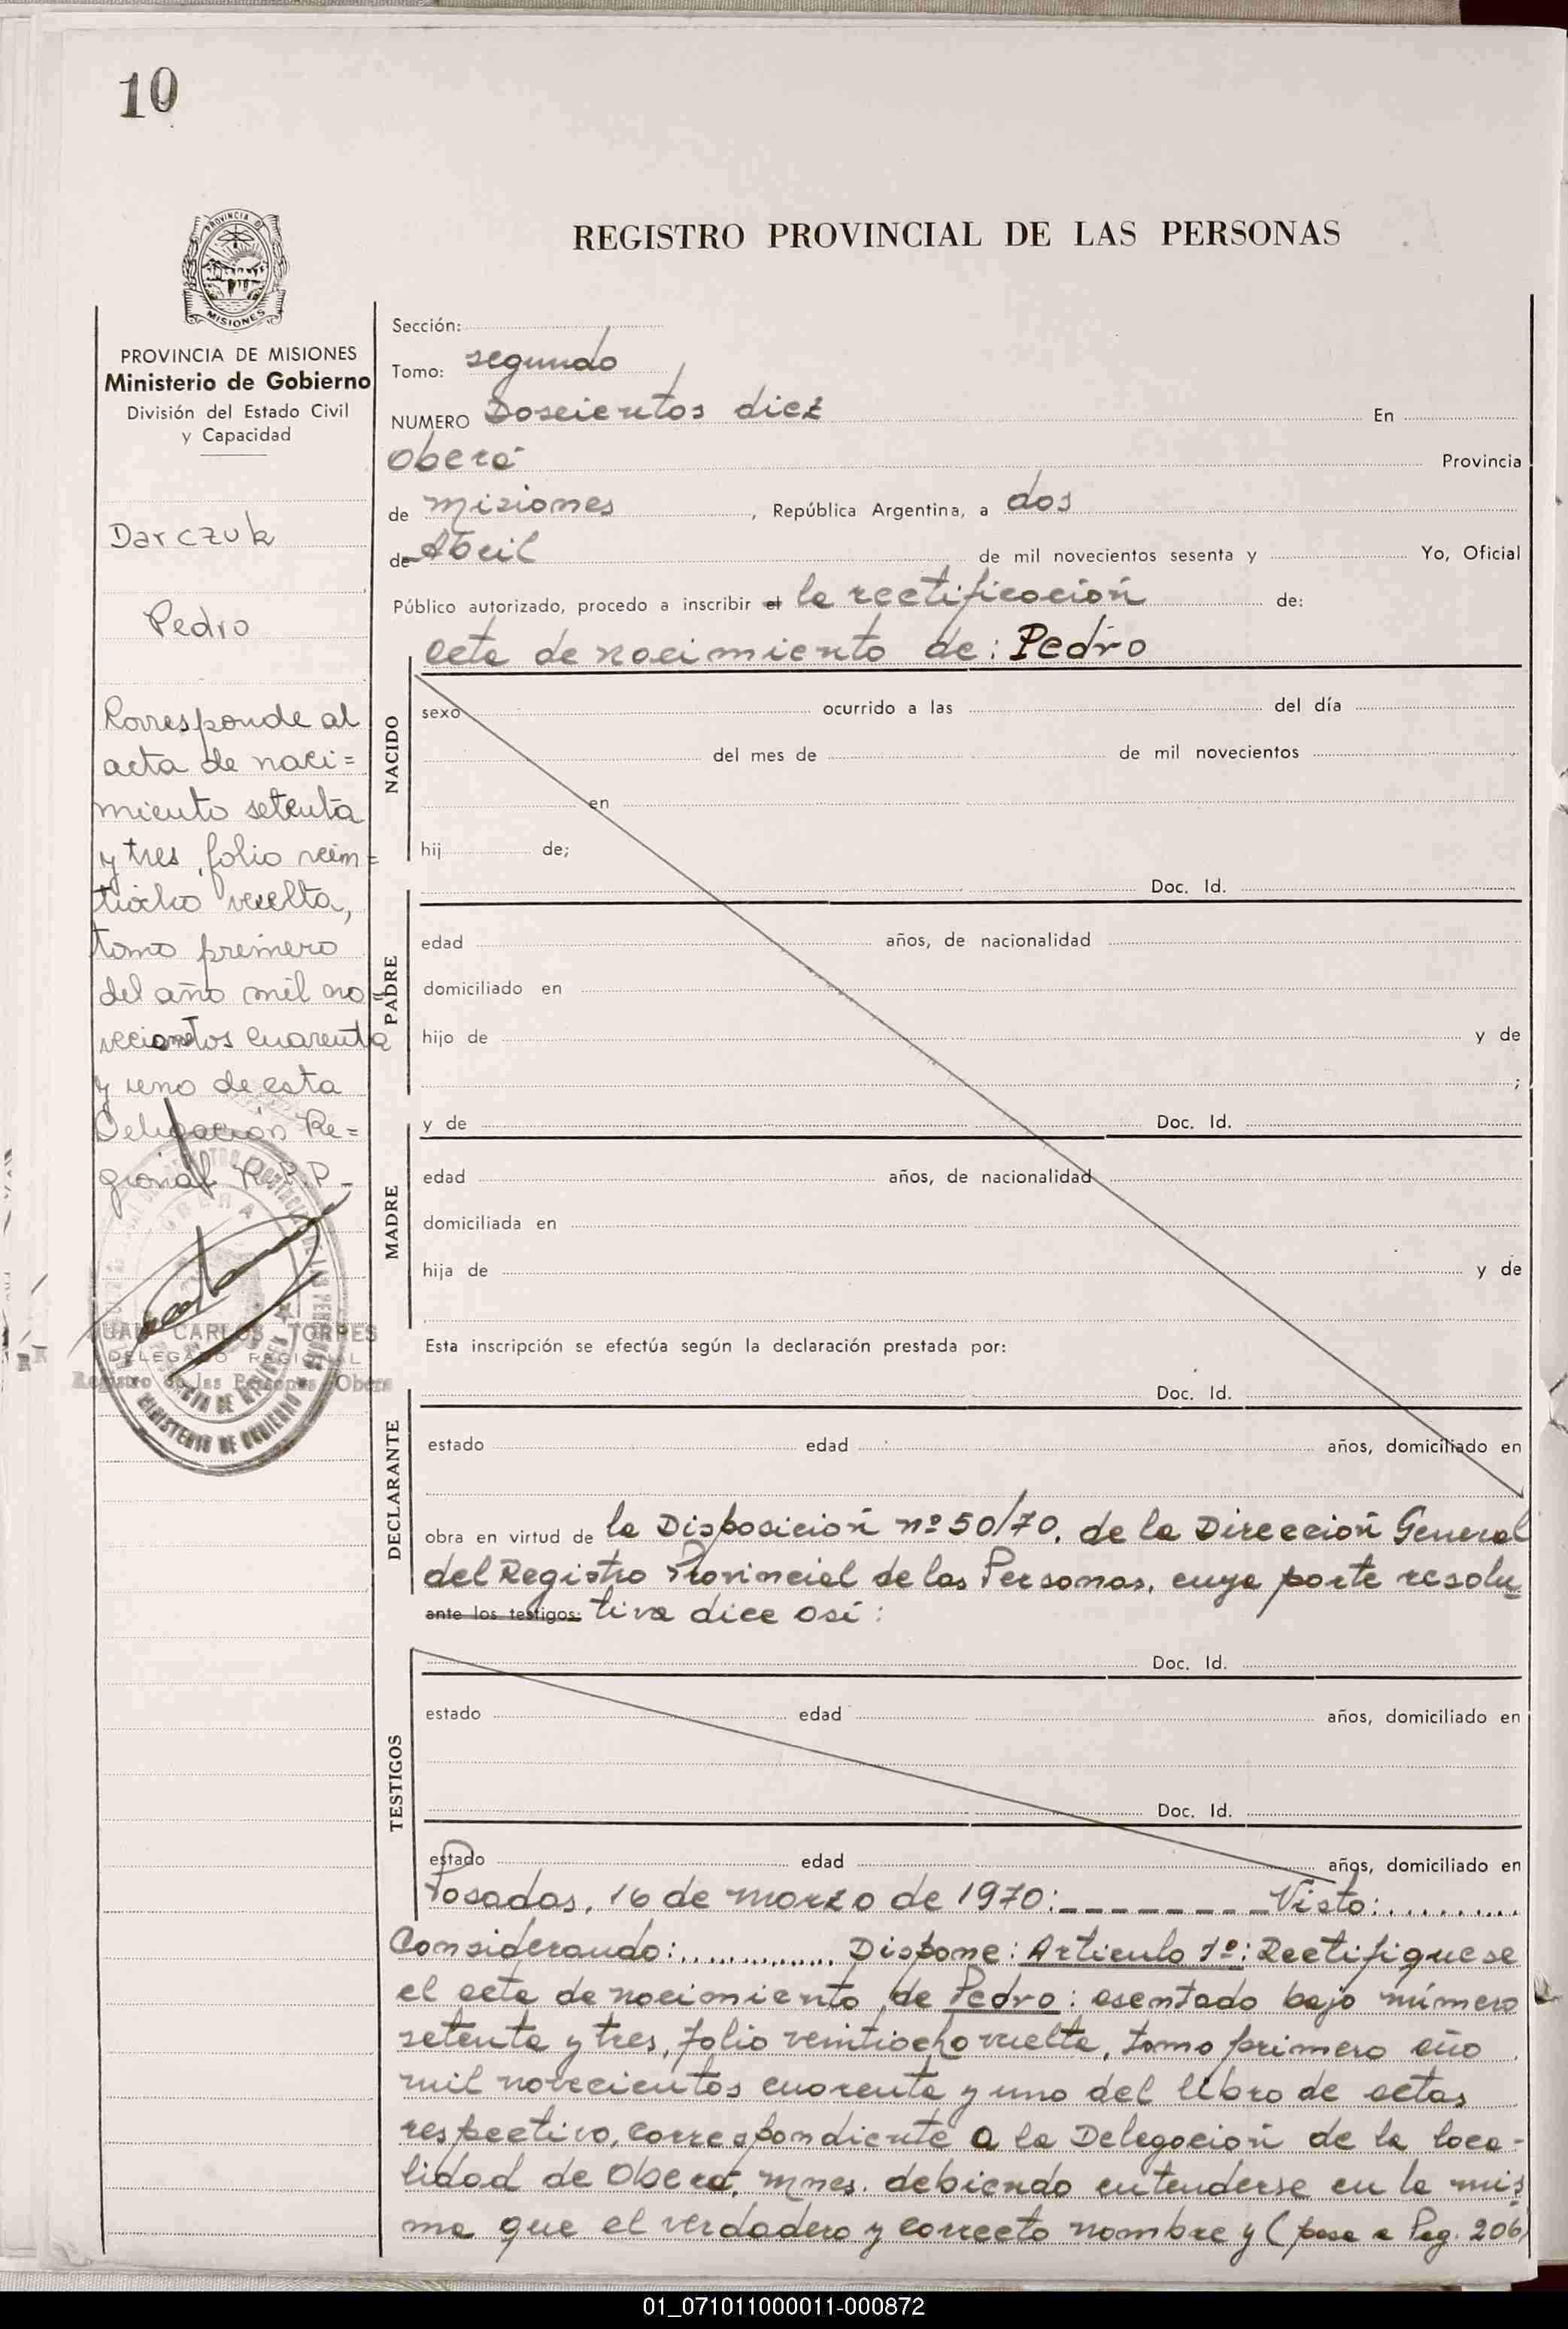 10
REGISTRO PROVINCIAL DE LAS PERSONAS
PROVINCIA DE MISIONES
Ministerio de Gobierno
División del Estado Civil
y Capacidad
Darczuk
Pedro
Corresponde al
acta de naci=
miento setenta
y tres, folio vein=
tiocho vuelta,
tomo primero
del año mil no=
vecientos cuarenta
y uno de esta
Delegación Re=
gional R.P.P.-
JUAN CARLOS TORRES
DELEGADO REGIONAL
Registro de las Personas - Oberá
OBERA
MINISTERIO DE GOBIERNO
Sección:
Tomo: segundo
NUMERO Doscientos diez En
Oberá Provincia
de Misiones, República Argentina, a dos
de Abril de mil novecientos sesenta y Yo, Oficial
Público autorizado, procedo a inscribir el la rectificación de:
acta de nacimiento de: Pedro
NACIDO
sexo ocurrido a las del día
del mes de de mil novecientos
en
hij de;
Doc. Id.
PADRE
edad años, de nacionalidad
domiciliado en
hijo de y de
;
y de Doc. Id.
MADRE
edad años, de nacionalidad
domiciliada en
hija de y de
Esta inscripción se efectúa según la declaración prestada por:
Doc. Id.
DECLARANTE
estado edad años, domiciliado en
obra en virtud de la Disposición nº 50/70, de la Dirección General
del Registro Provincial de las Personas, cuya parte resolu
ante los testigos: tiva dice así:
Doc. Id.
TESTIGOS
estado edad años, domiciliado en
Doc. Id.
estado edad años, domiciliado en
Posadas, 16 de marzo de 1970:_ _ _ _ _ _ _ _ _Visto:..........
Considerando:............. Dispone: Articulo 1º: Rectifiquese
el acta de nacimiento de Pedro: asentado bajo número
setenta y tres, folio veintiocho vuelta, tomo primero año
mil novecientos cuarenta y uno del libro de actas
respectivo, correspondiente a la Delegación de la loca-
lidad de Oberá, Mnes. debiendo entenderse en la mis
ma que el verdadero y correcto nombre y (pasa a Pag. 206)
01_071011000011-000872